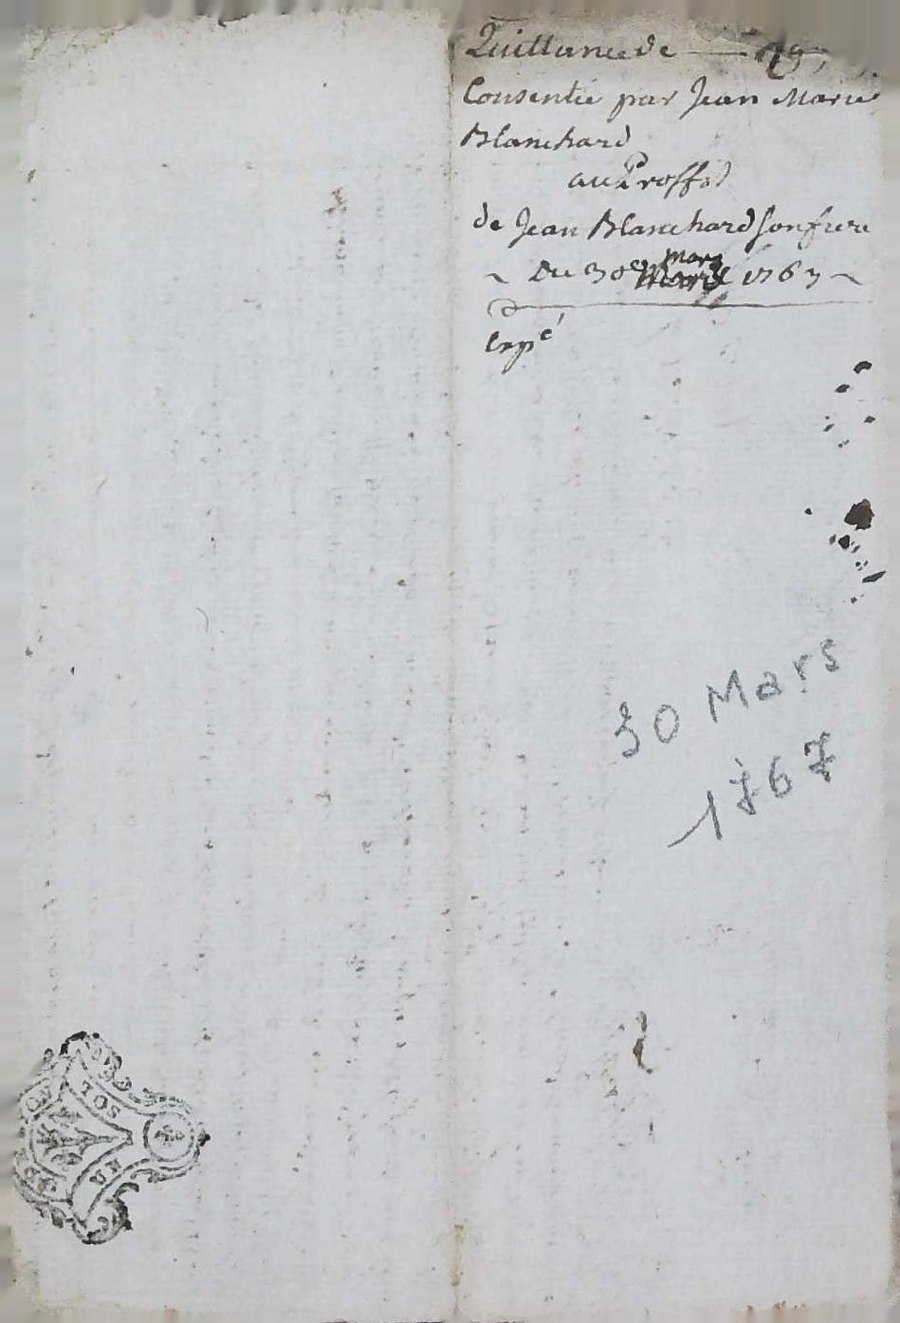 Quittance de
Consentie par Jean Marie
Blanchard
au Proffit
de Jean Blanchard son frere
Du 30e mars 1767
Expé
30 Mars
1767
SOL